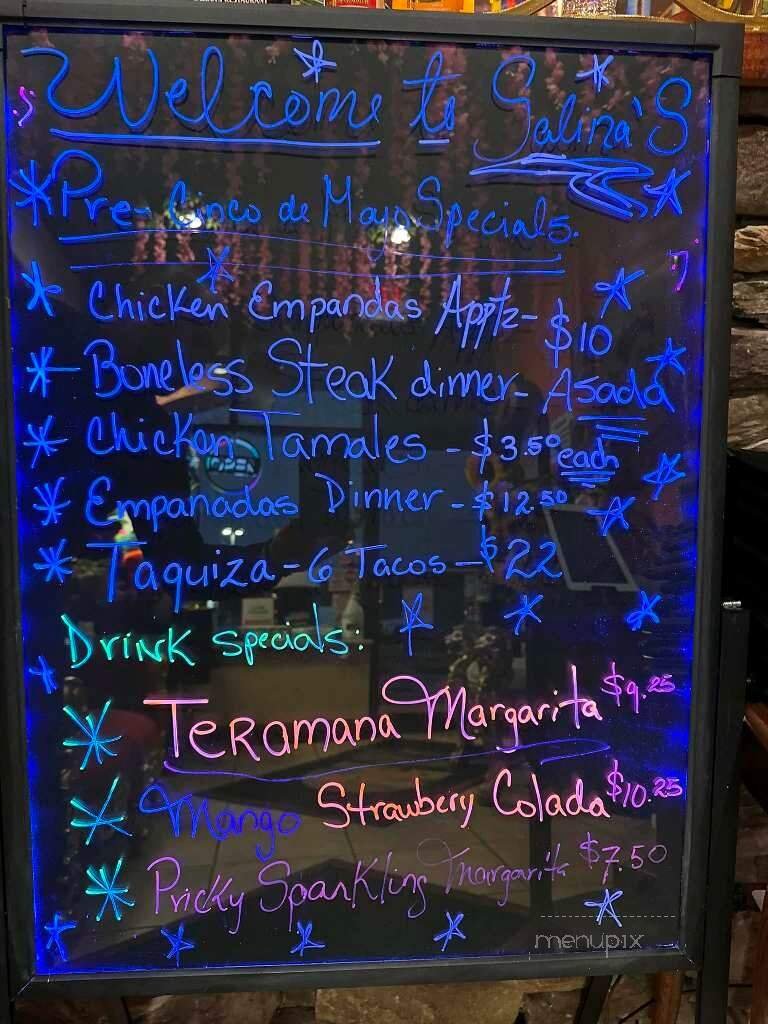 Welcome to Salina'S
Pre-Cinco de Mayo Specials.
Chicken Empandas Apptz- $10
Boneless Steak dinner- Asada
Chicken Tamales - $3.50 each
Empanadas Dinner - $12.50
Taquiza - 6 Tacos - $22
Drink Specials:
Teramana Margarita $9.25
Mango Strawbery Colada $10.25
Pricky Sparkling Margarita $7.50
OPEN
menupix